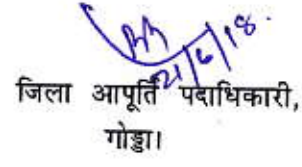 21/6/18.
जिला आपूर्ति पदाधिकारी,
गोड्डा।